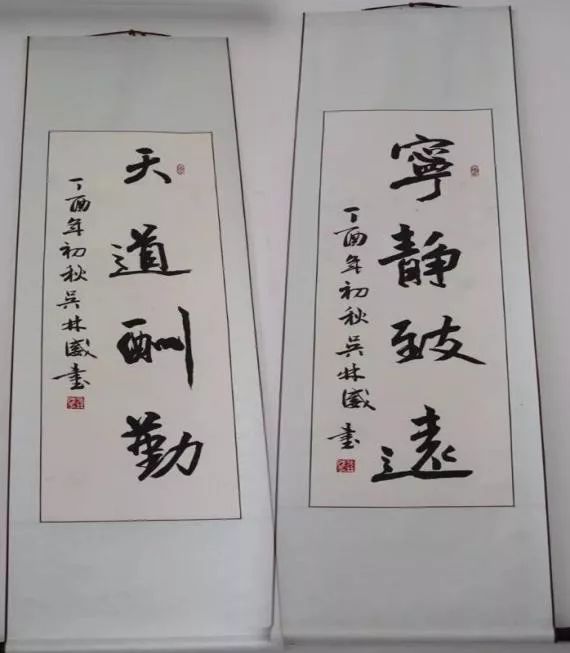 天道酬勤
丁酉年初秋吴林盛书
寧靜致遠
丁酉年初秋吴林盛書